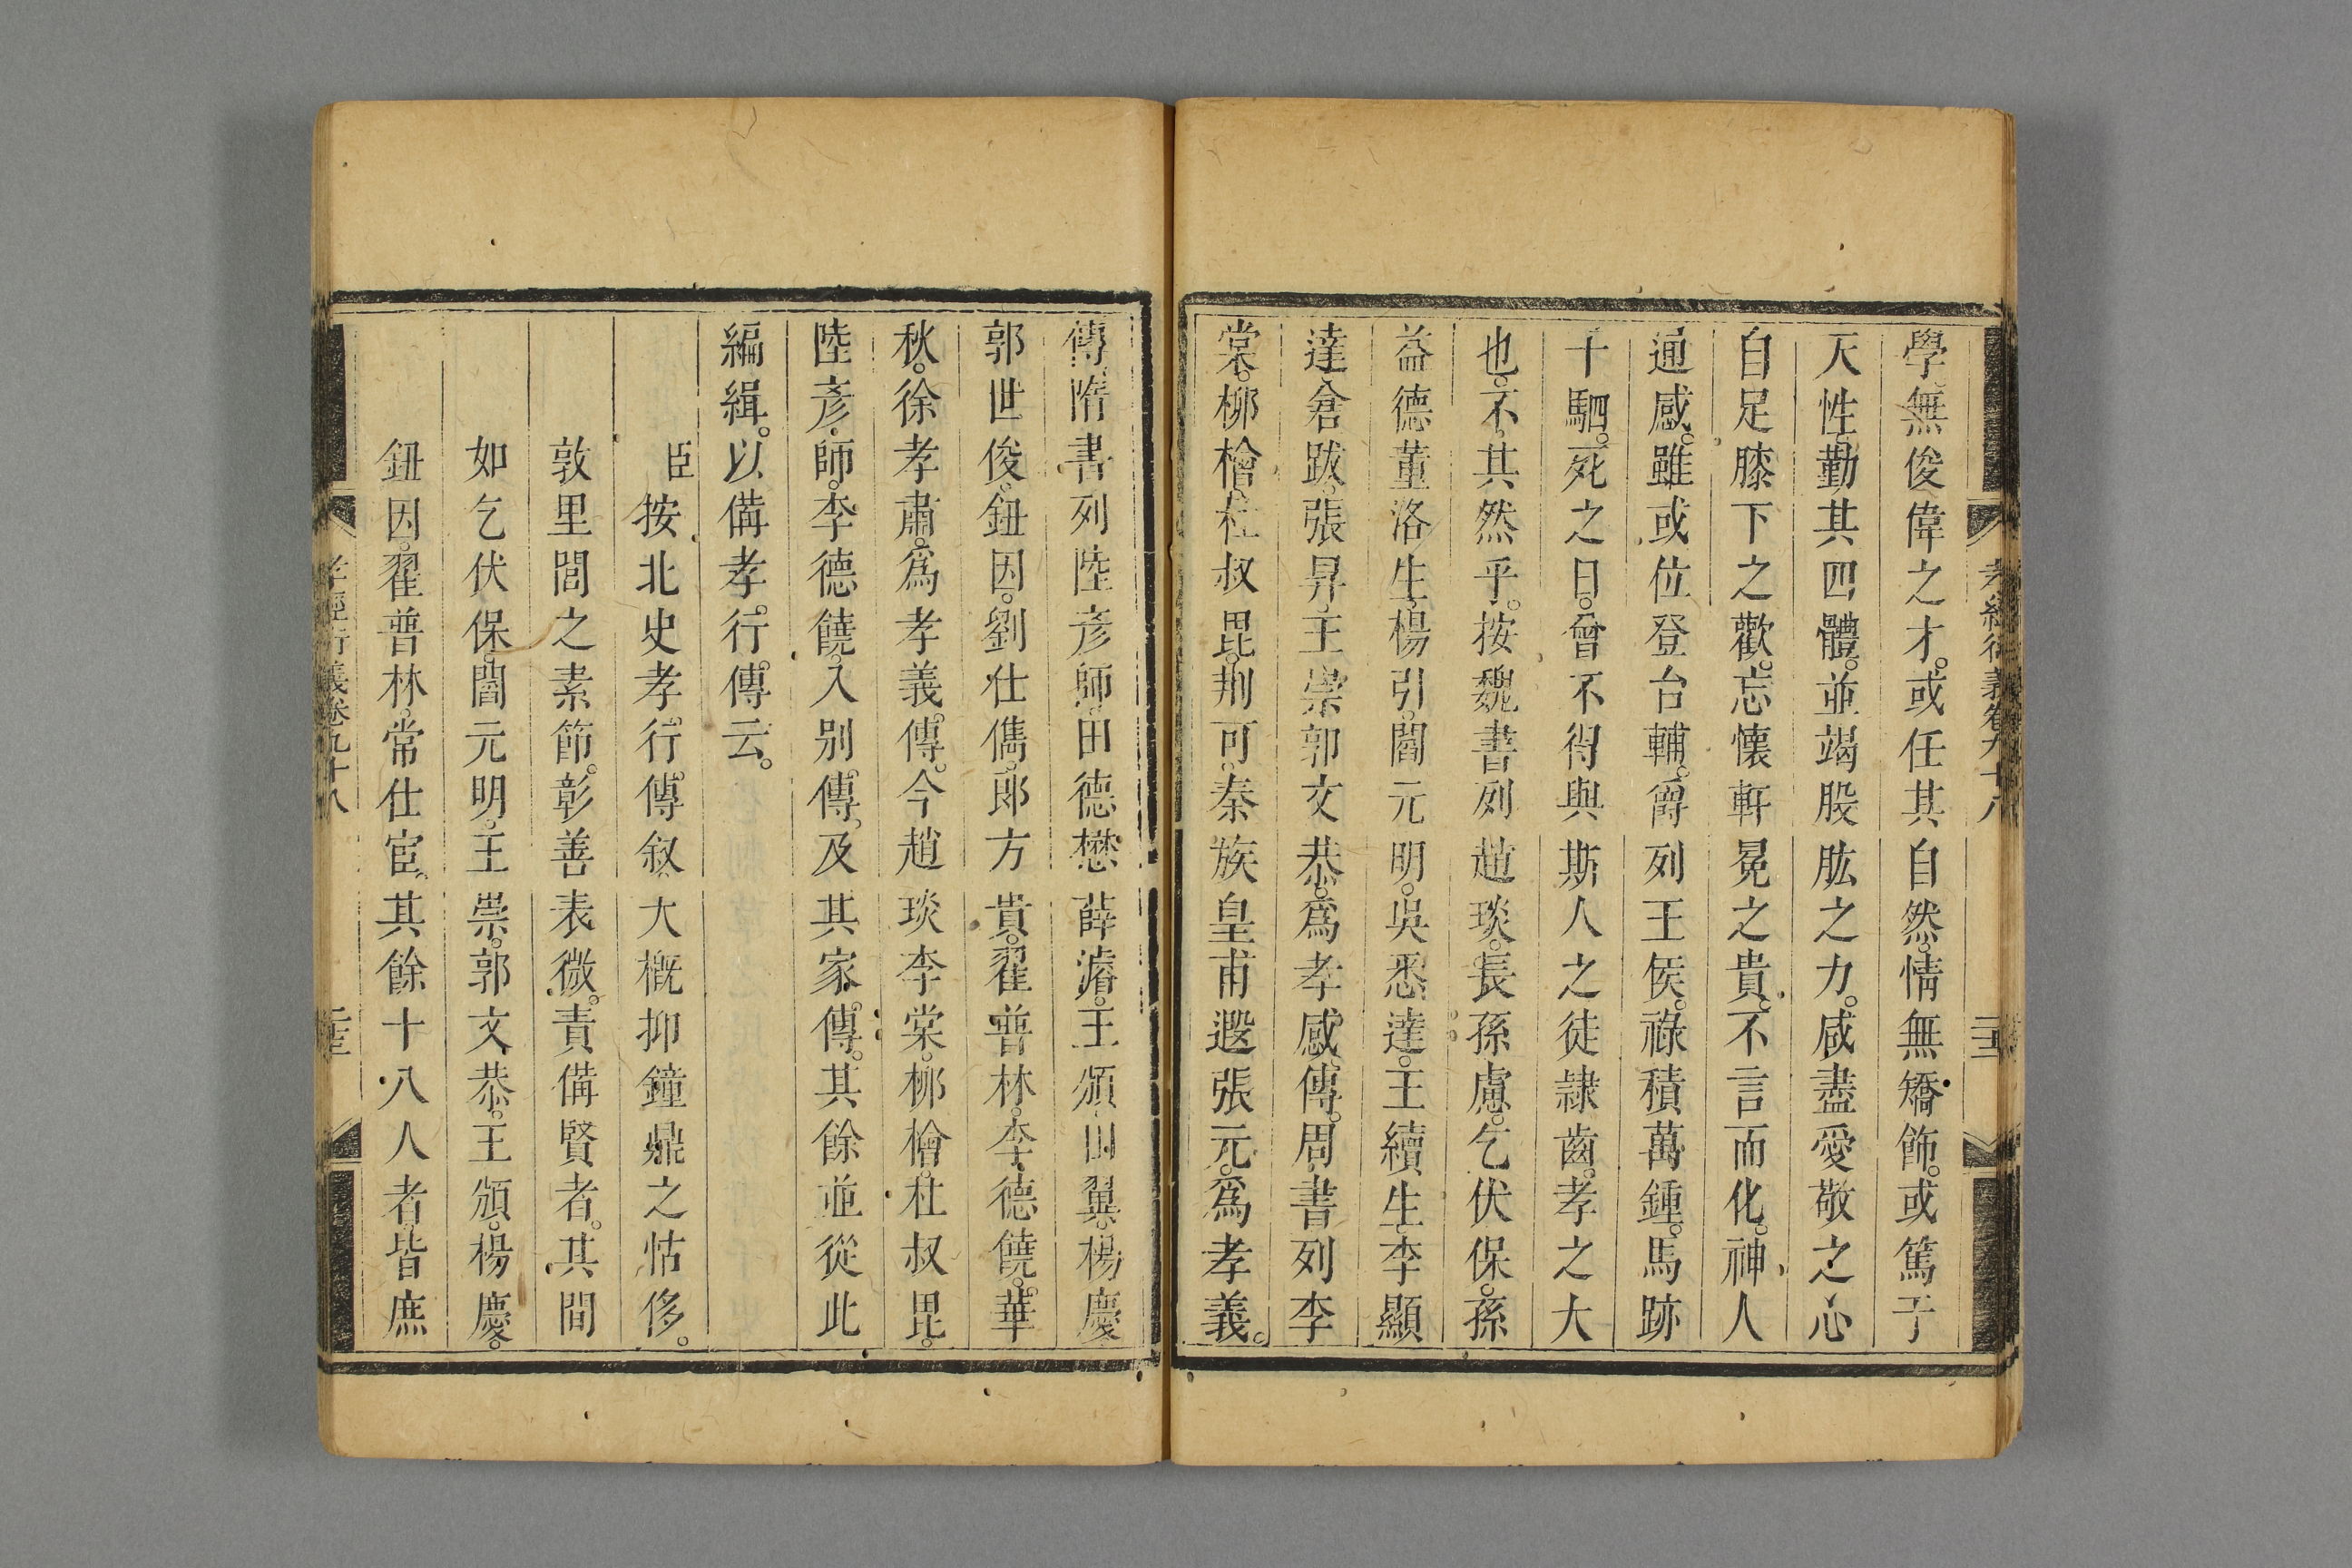 孝經衍義卷九十八
二十二
學。無俊偉之才。或任其自然。情無矯飾。或篤于
天性。勤其四體。並竭股肱之力。咸盡愛敬之心
自足膝下之歡。忘懷軒冕之貴。不言而化。神人
通感。雖或位登台輔。爵列王侯。祿積萬鍾。馬跡
千駟。死之日。曾不得與斯人之徒隷齒。孝之大
也。不其然乎。按魏書列趙琰。長孫慮。乞伏保。孫
益德董洛生。楊引。閻元明。吳悉達。王續生。李顯
達。倉跋。張昇。王崇郭文恭。爲孝感傳。周書列李
棠。柳檜。杜叔毘。荆可。秦族皇甫遐張元。爲孝義。
傳。隋書列陸彥師。田德懋薛濬。王頒。田翼。楊慶
郭世俊。鈕因。劉仕儁。郎方貴。翟普林。李德饒。華
秋。徐孝肅。爲孝義傳。今趙琰李棠。柳檜。杜叔毘。
陸彥師。李德饒。入別傳。及其家傳。其餘並從此
編緝。以備孝行傳云。
臣按北史孝行傳叙。大概抑鐘鼎之怙侈。
敦里閭之素節。彰善表微。責備賢者。其間
如乞伏保。閻元明。王崇。郭文恭。王頒。楊慶。
鈕因。翟普林。常仕宦。其餘十八人者。皆庶
孝經衍義卷九十八
二十三